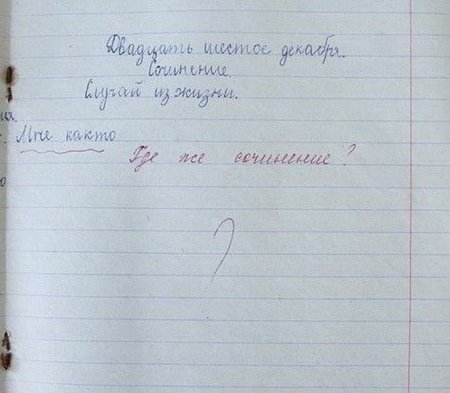 Двадцать шестое декабря.
Сочинение.
Случай из жизни.
Мне както
Где же сочинение?